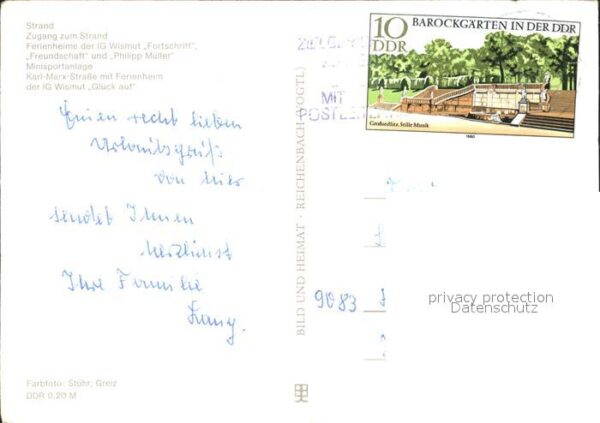 Strand
Zugang zum Strand
Ferienheime der IG Wismut „Fortschritt",
„Freundschaft" und „Philipp Müller"
Minisportanlage
Karl-Marx-Straße mit Ferienheim
der IG Wismut „Glück auf"
Einen recht lieben
Urlaubsgruß
von hier
sendet Ihnen
herzlichst
Ihre Familie
Lang.
Farbfoto: Stöhr, Greiz
DDR 0,20 M
BILD UND HEIMAT · REICHENBACH (VOGTL)
MIT
POSTLEITZAHL
10
DDR
BAROCKGÄRTEN IN DER DDR
Großsedlitz, Stille Musik
1980
9083
privacy protection
Datenschutz